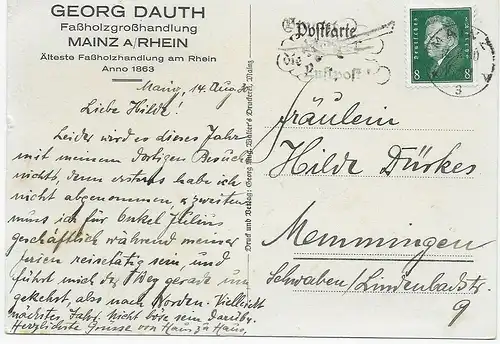 GEORG DAUTH
Faßholzgroßhandlung
MAINZ A/RHEIN
Älteste Faßholzhandlung am Rhein
Anno 1863
Mainz, 14. Aug. 30
Liebe Hilde!
Leider wird es dieses Jahr
mit meinem dortigen Besuch
nichts, denn erstens habe ich
nicht abgenommen, zweitens
muss ich für Onkel Julius
geschäftlich während meiner
Ferien reisetätig sein und
führt mich der Weg gerade um
gekehrt, also nach Norden. Vielleicht
nächstes Jahr. Nicht böse sein darüb.
Herzlichste Grüsse von Haus zu Haus,
Druck und Verlag: Georg Aug. Walter's Druckerei, Mainz.
Postkarte
die
Luftpost
Deutsches Reich
8 8
Fräulein
Hilde Dürkes
Memmingen
Schwaben/Lindenbadstr.
9